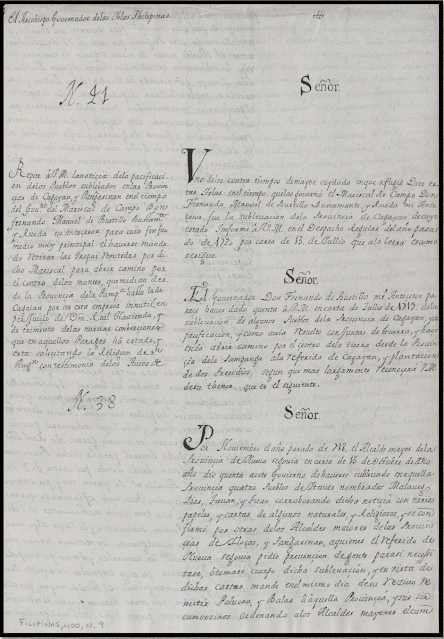 El Arzobispo Governador de las Yslas Philipinas.
N. 21
Repite à V.M. la noticia dela pacificacion delos Pueblos sublevados enlas Provincias de Cagayan, y Pangasinan en el tiempo
del Gov.no del Mariscal de Campo Don
Fernando Manuel de Bustillo Bustam.te
y Rueda su Antecesor para cuio fin fue
medio muy principal el haverse mandado
retirar las tropas remitidas por dicho
Mariscal para abrir camino por
el centro delos montes, que median desde la Provincia dela Pamp.a hasta la de
Cagayan por ser esta empresa inutil, en
perjuicio de Vra. Real Hazienda, y
detrimento delas nuevas combersiones
que en aquellos Parages hà estado, y
està solicitando la Religion de
con testimonio delos Autos
N. 38
Señor.
Uno delos contratiempos demayor cuydado enque afligiò Dios estas Yslas en el tiempo quelas governò el Mariscal de Campo Don
Fernando Manuel de Bustillo Bustamante, y Rueda mi Antecesor, fue la sublevacion dela Provincia de Cagayan de cuyo
estado informè à V.M. en el Despacho regular del año pasado de 1720 por carta de 13. de Jullio que ala letra es como
se sigue.
Señor.
El Governador Don Fernando de Bustillo mi Antecesor parece haver dado quenta à V.M. en carta de Julio de 1719. dela
sublevacion de algunos Pueblos dela Provincia de Cagayan, y su
pacificacion, y como avia resuelto con Juntas de Guerra, y Hacienda abrir camino por el centro dela tierra desde la Provincia dela Pampanga àla referida de Cagayan, y plantacion
de dos Presidios, segun que mas largamente reconocerà V.M.
de su thenor, que es el siguiente.
Señor.
Por Noviembre el año pasado de 718. el Alcalde mayor dela
Provincia de Nueva segovia en carta de 13 de octubre de dho
año diò quenta àeste Govierno de haverse sublevado en aquella
Provincia quatro Pueblos de Ytaves nombrados Malaueg,
corroborando dicha noticia con varios
papeles, y cartas de algunos naturales, y Religiosos, y se confirmò por otras delos Alcaldes maiores delas Provincias de Ylocos, y Pangasinan, aquienes el referido de
Nueva segovia pidiò prevencion de gente para si necesitase, ò tomase cuerpo dicha sublevacion, y en vista de
dichas cartas mandè en el mismo dia de su recivo remitir Polvora, y Balas à aquella Provincia, y sus
ordenando alos Alcaldes mayores
FILIPINAS,400,N.9